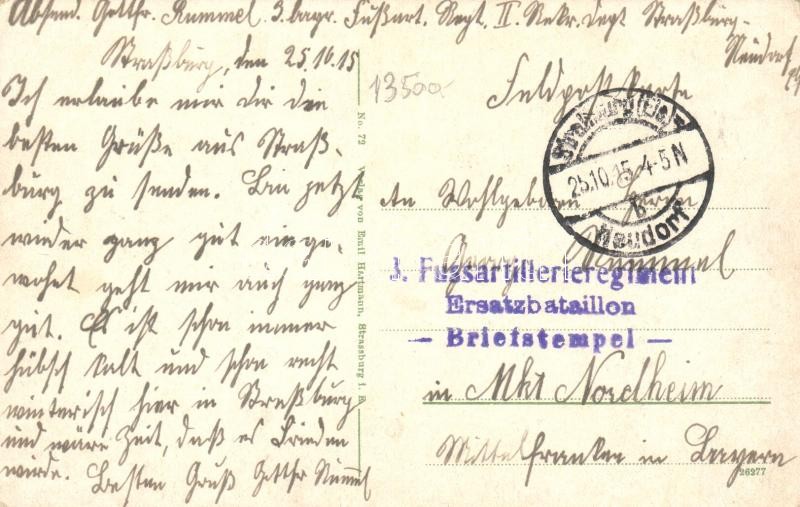 Absend. Gottfr. Rummel 3. bayr. Fußart. Regt. II. Rekr. Dept Straßburg-
Neudorf
Straßburg, den 25.10.15
Ich erlaube mir Dir die
besten Grüße aus Straß-
burg zu senden. Bin jetzt
wieder ganz gut einge-
wohnt geht mir auch ganz
gut. Es ist schon immer
hübsch kalt und schon recht
winterisch hier in Straßburg
und wäre Zeit, daß es Frieden
würde. Besten Gruß Gottfr Rummel
No. 72 Verlag von Emil Hartmann, Strassburg i. E.
13500
Feldpostkarte
Strassburg (Els)
25.10.15 4-5N
b
Neudorf
An Wohlgeboren Herrn
Georg Rummel
3. Fussartillerieregiment
Ersatzbataillon
— Briefstempel —
in Mkt Nordheim
Mittelfranken in Bayern
26277